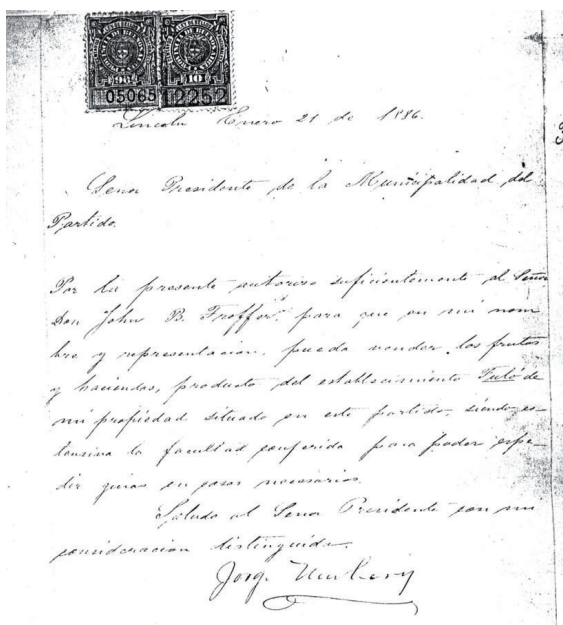 05065 12252
Lincoln Enero 21 de 1896.
Senor Presidente de la Municipalidad del
Partido.
Por la presente autorizo suficientemente al Señor
Don John B. para que en mi nom
bre y representacion, pueda vender los frutos
y haciendas, producto del establecimiento de
mi propiedad situado en este partido, siendo es-
tensiva la facultad conferida para poder espe-
dir guias en casos necesarios.
Saludo al Senor Presidente con mi
consideracion distinguida.
Jorg. Newbery